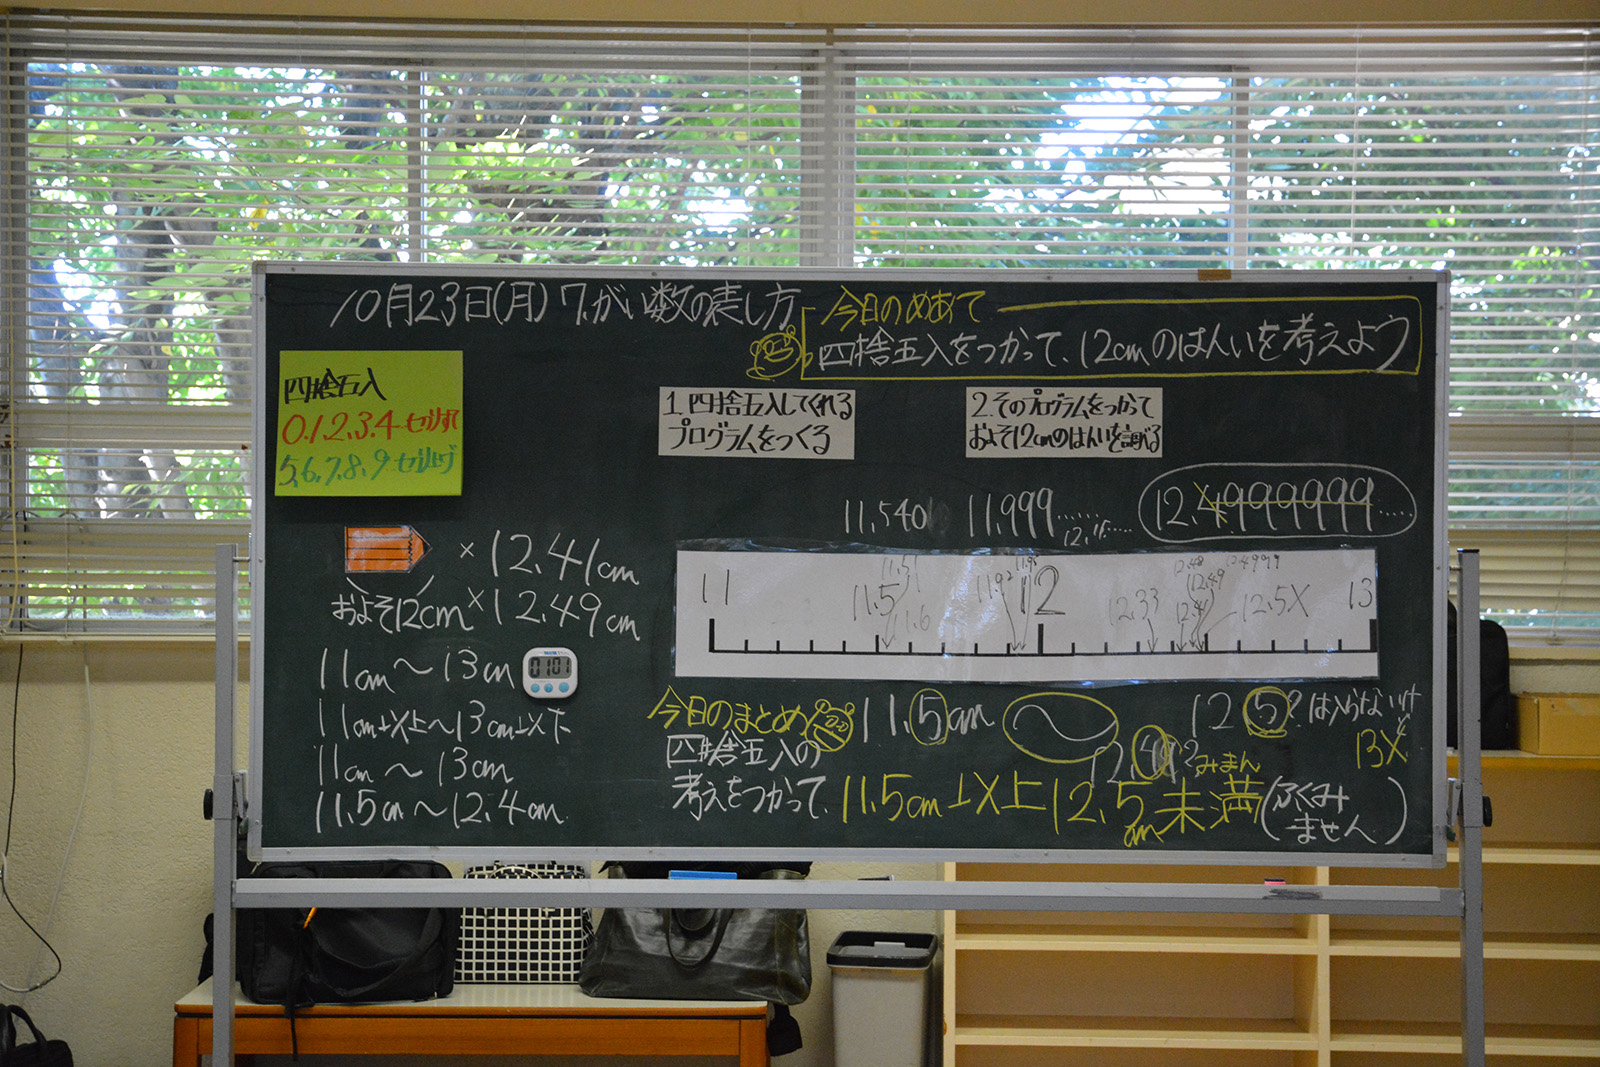 10月23日(月) 7.がい数の表し方
今日のめあて
四捨五入をつかって、12cmのはんいを考えよう
四捨五入
0.1.2.3.4
5,6,7,8,9
1.四捨五入してくれる
プログラムをつくる
2.そのプログラムをつかって
およそ12cmのはんいを調べる
11.540
11.999......
12.4999999.....
× 12.41cm
およそ12cm × 12.49cm
11cm～13cm
0101
11cm以上～13cm以下
11cm～13cm
11.5cm～12.4cm
11 11.5 11.51 1.6 11.92 12 12.33 12.41 12.48 12.49 12.4999 12.5× 13
今日のまとめ
四捨五入の
考えをつかって、
11.5cm ～ 12 5? はいらない
13×
みまん
11.5cm以上12.5cm未満(ふくみ
ません)